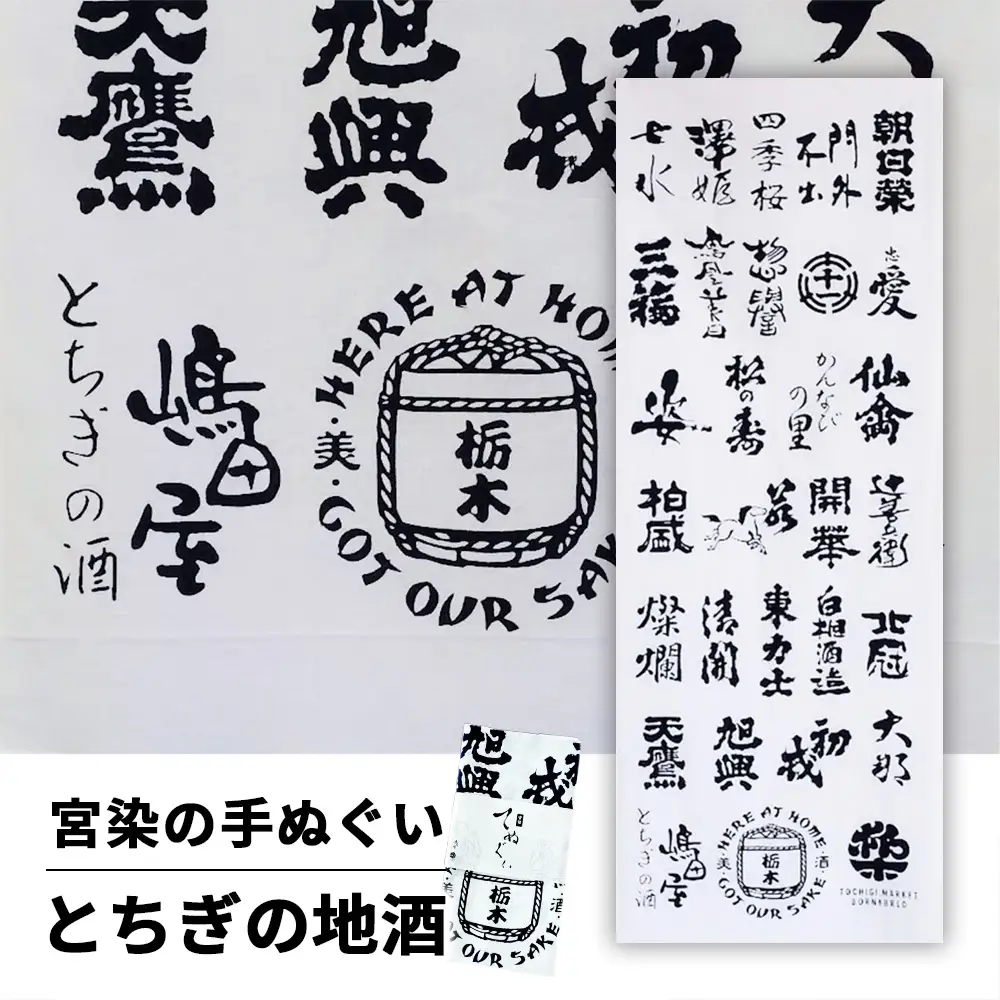 天鷹
旭興
初戎
大
とちぎの酒
嶋田屋
HERE AT HOM
・美・
栃木
GOT OUR SAK
朝日榮
門外不出
四季桜
澤姫
七水
忠愛
十一
惣譽
鳳凰美田
三福
仙禽
かんなびの里
松の寿
姿
辻善兵衛
開華
柏盛
北冠
白相酒造
東力士
清開
燦爛
大那
初戎
旭興
天鷹
栃
TOCHIGI MARKET
BORN&BRED
HERE AT HOME
・美・
栃木
・酒・
GOT OUR SAKE
嶋田屋
とちぎの酒
宮染の手ぬぐい
とちぎの地酒
旭興
戎
てぬぐい
美
栃木
酒
OUR SAKE